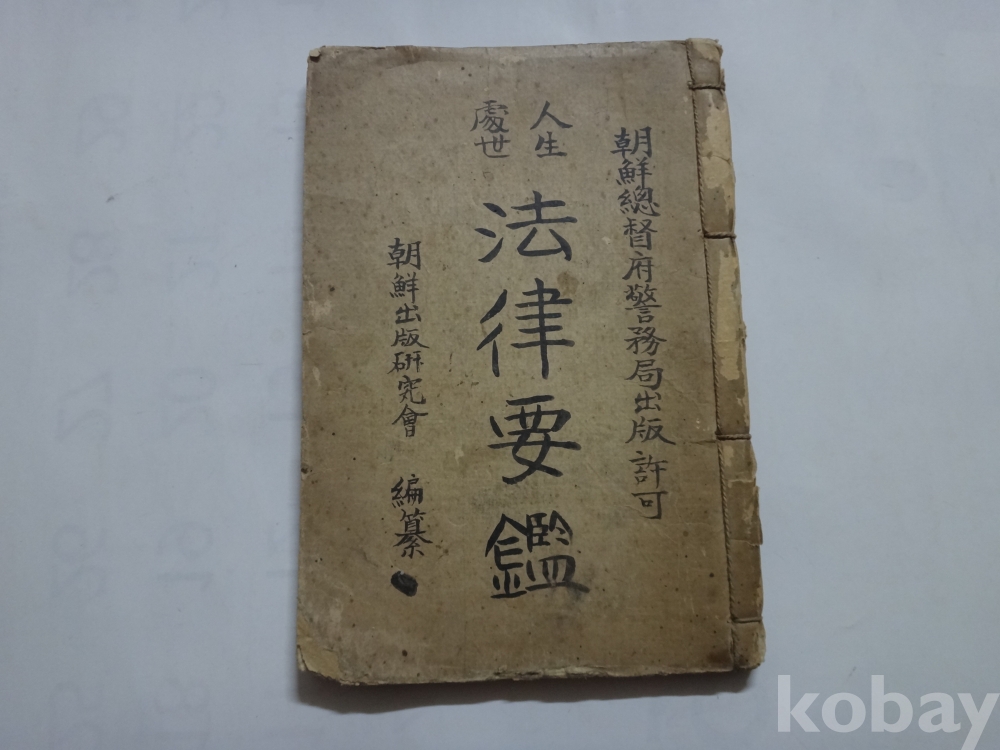 朝鮮總督府警務局出版許可
人生
處世
法律要鑑
朝鮮出版硏究會 編纂
kobay